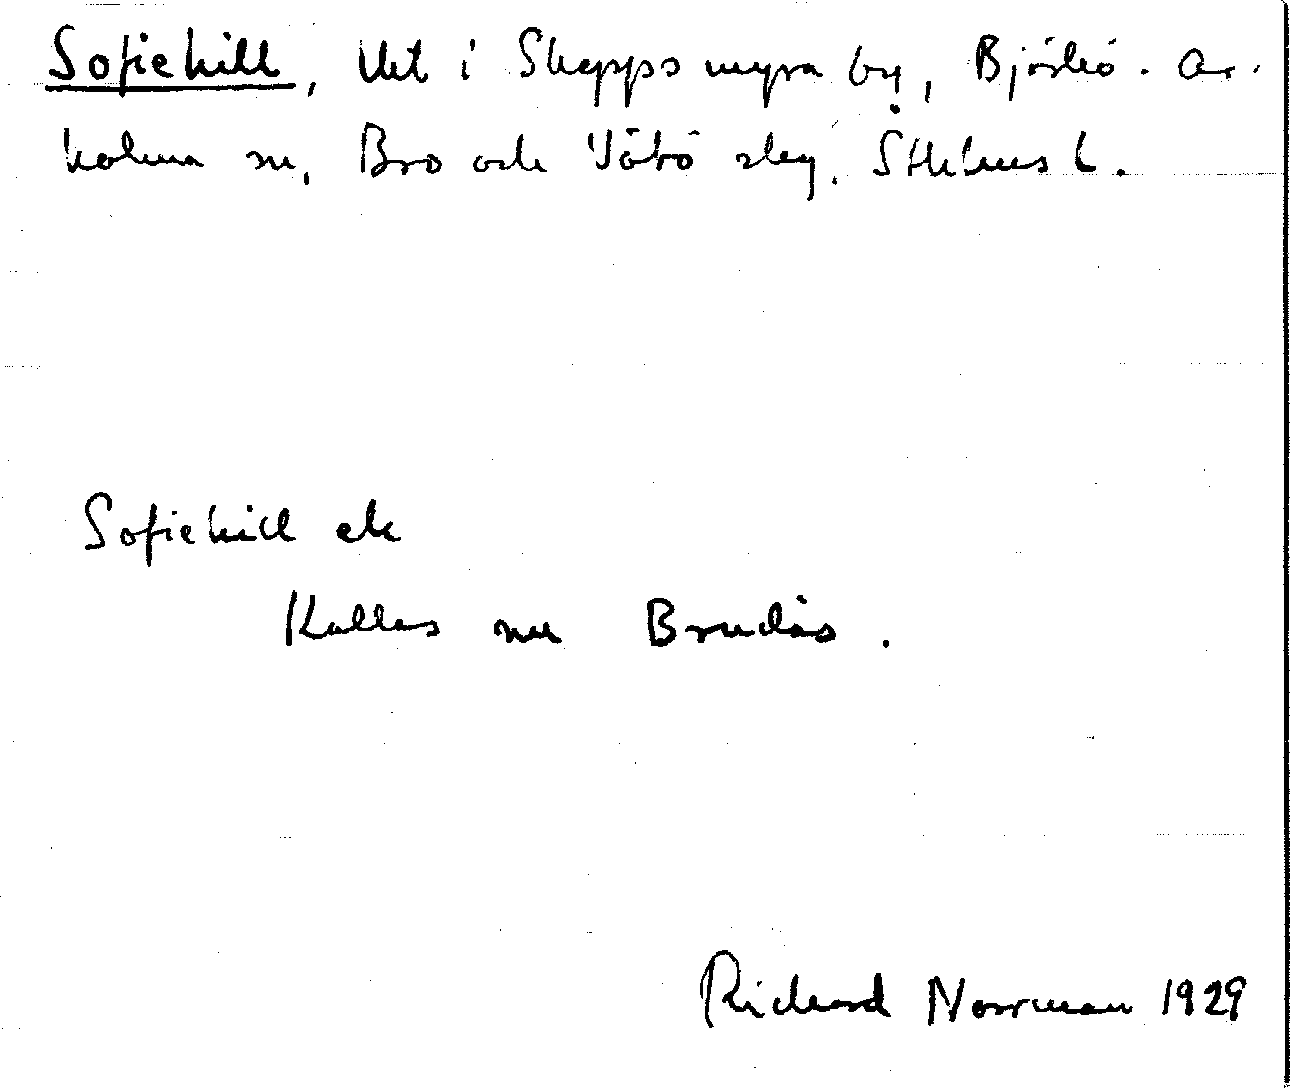 Sofiehill, Uet i Skeppsmyra by, Björkö-Ar-
holma sn, Bro och Vätö skg. Sthlms l.
Sofiehill ek
Kallas nu Brudås.
Richard Norrman 1929